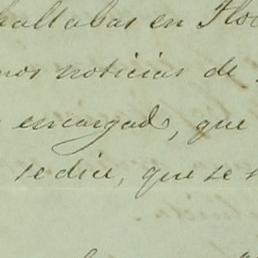 hallabas en Flo
nos noticias de
encargad, que
se dice, que se